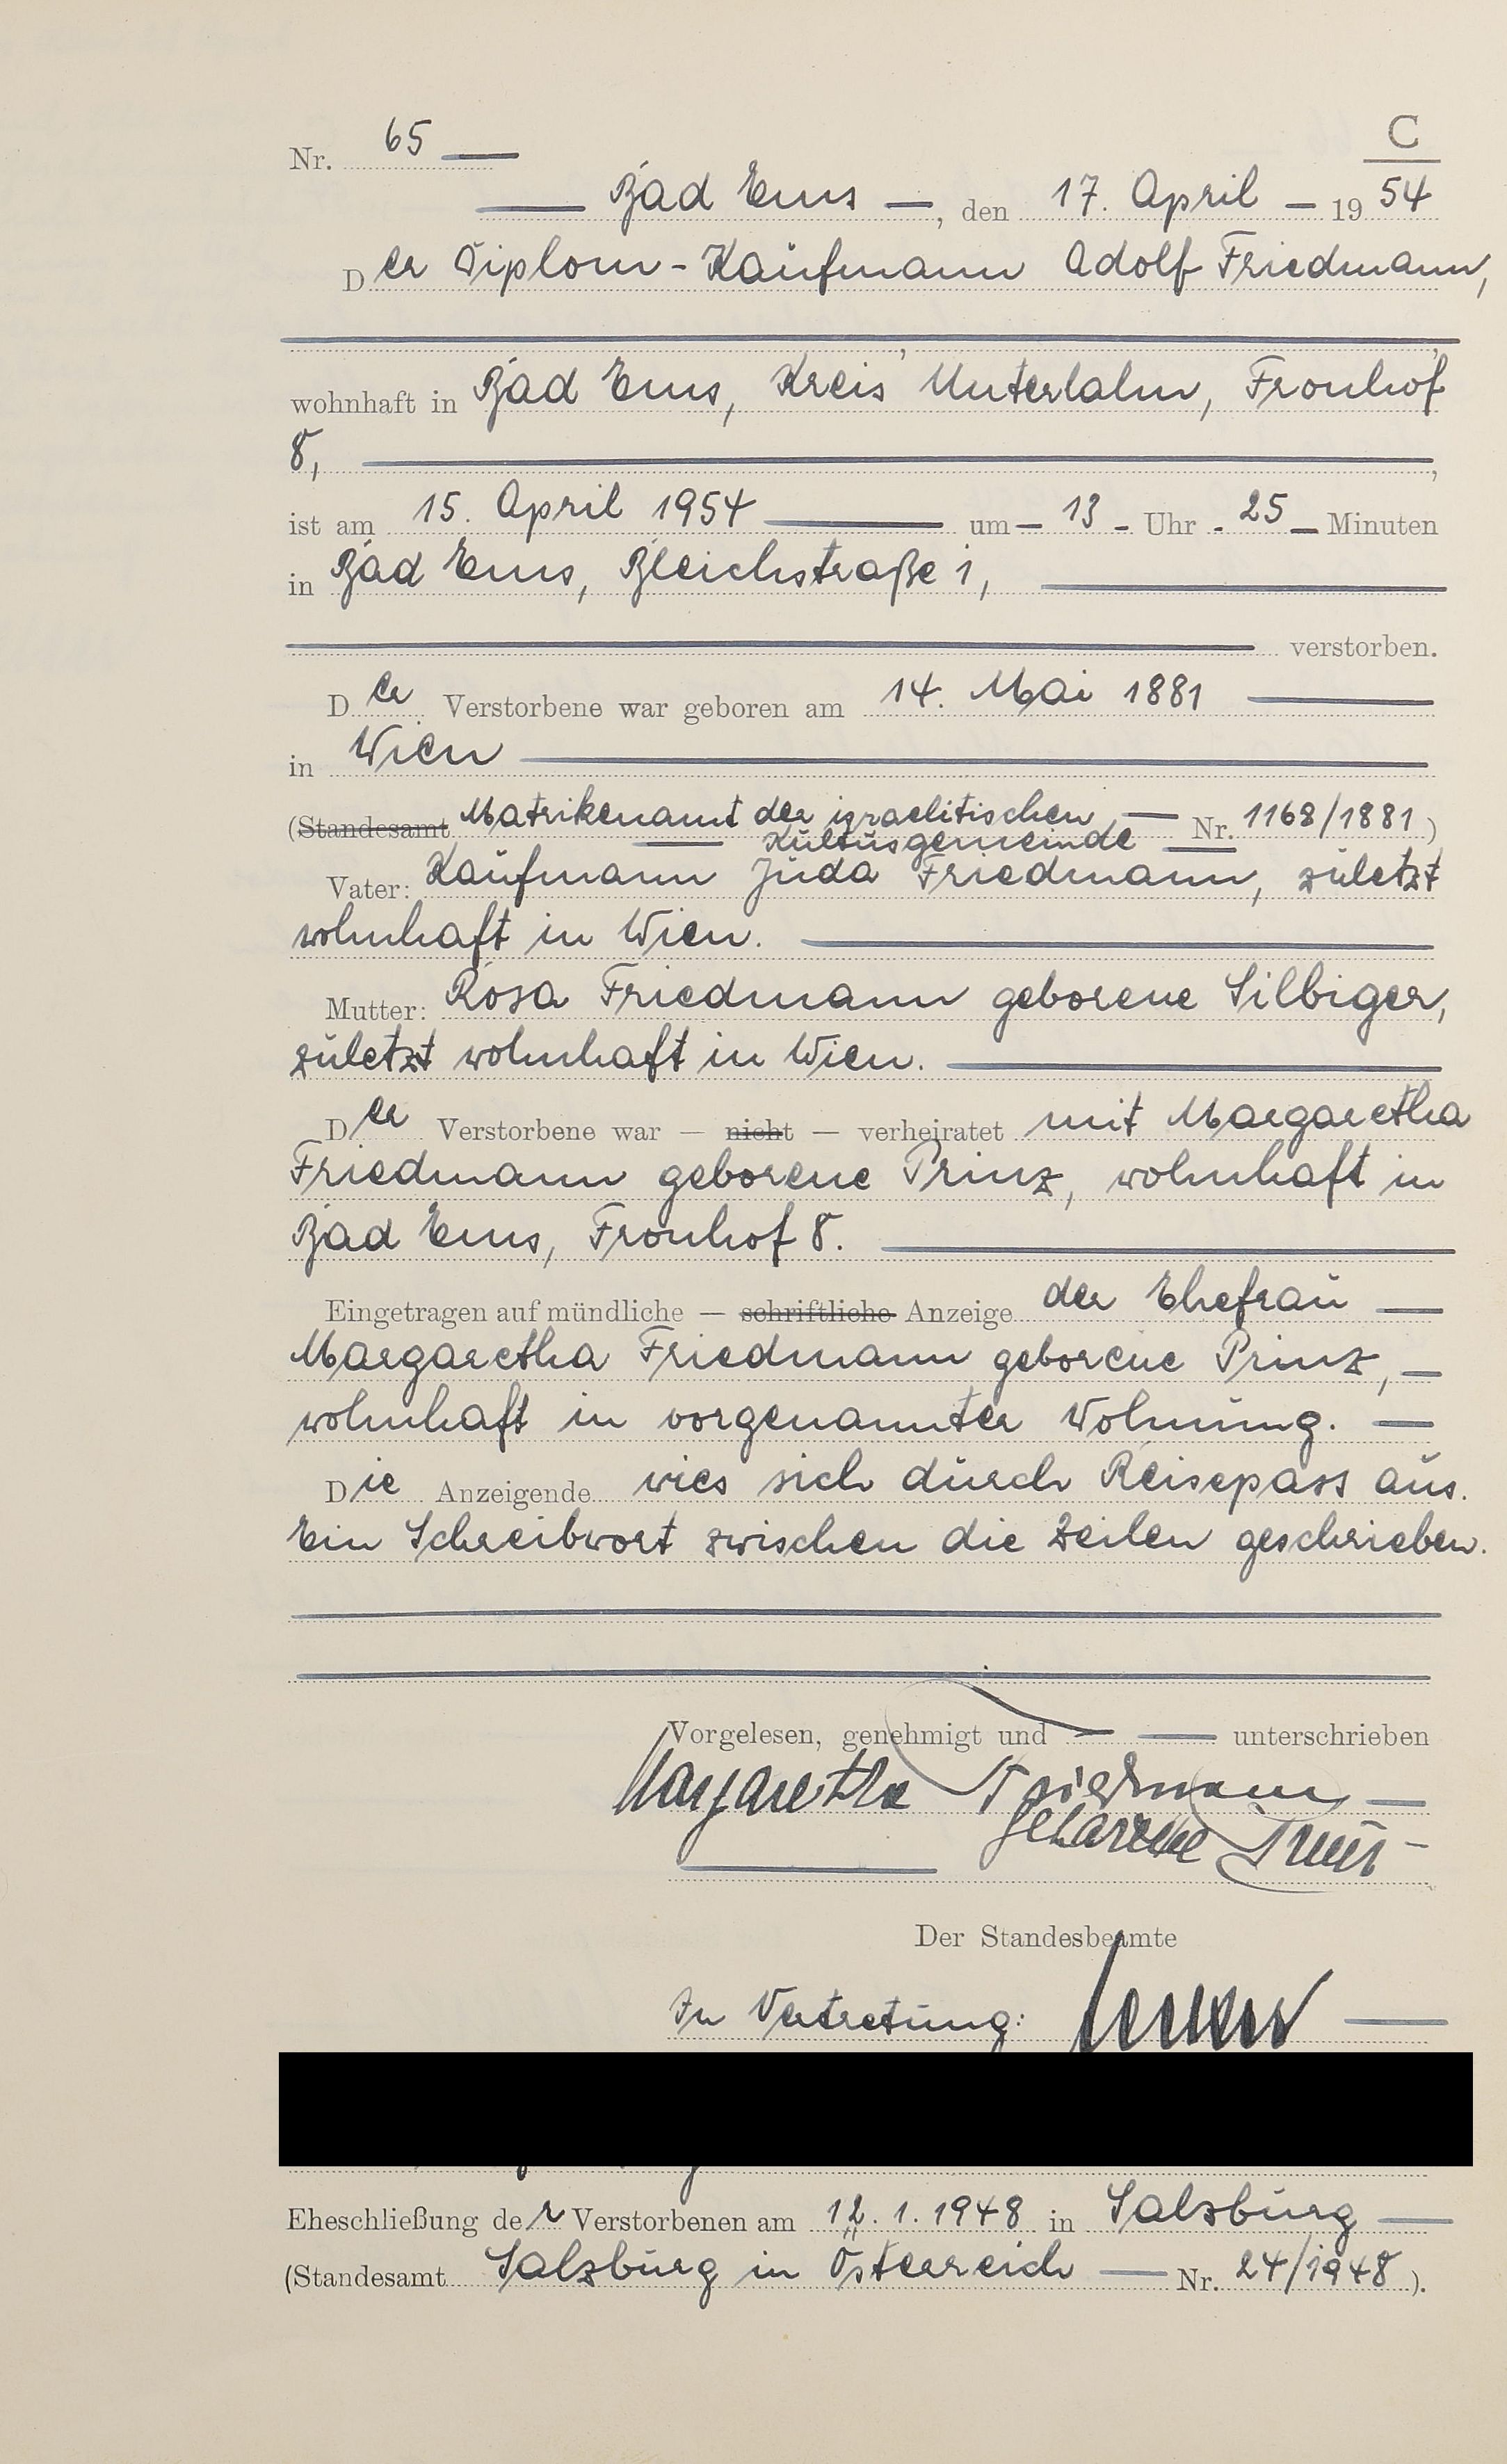 C
Nr. 65
Bad Ems, den 17. April 1954
Der Diplom-Kaufmann Adolf Friedmann,
wohnhaft in Bad Ems, Kreis Unterlahn, Fronhof
8,
ist am 15. April 1954 um 13 Uhr 25 Minuten
in Bad Ems, Bleichstraße 1,
verstorben.
Der Verstorbene war geboren am 14. Mai 1881
in Wien
(Standesamt Matrikenamt der israelitischen Nr. 1168/1881)
Kultusgemeinde
Vater: Kaufmann Juda Friedmann, zuletzt
wohnhaft in Wien.
Mutter: Rosa Friedmann geborene Silbiger,
zuletzt wohnhaft in Wien.
Der Verstorbene war — nicht — verheiratet mit Margaretha
Friedmann geborene Prinz, wohnhaft in
Bad Ems, Fronhof 8.
Eingetragen auf mündliche — schriftliche Anzeige der Ehefrau
Margaretha Friedmann geborene Prinz,
wohnhaft in vorgenannter Wohnung.
Die Anzeigende wies sich durch Reisepass aus.
Ein Schreibwort zwischen die Zeilen geschrieben.
Vorgelesen, genehmigt und unterschrieben
Margaretha Friedmann
geborene Prinz
Der Standesbeamte
In Vertretung:
Eheschließung der Verstorbenen am 12.1.1948 in Salzburg
(Standesamt Salzburg in Österreich Nr. 24/1948).